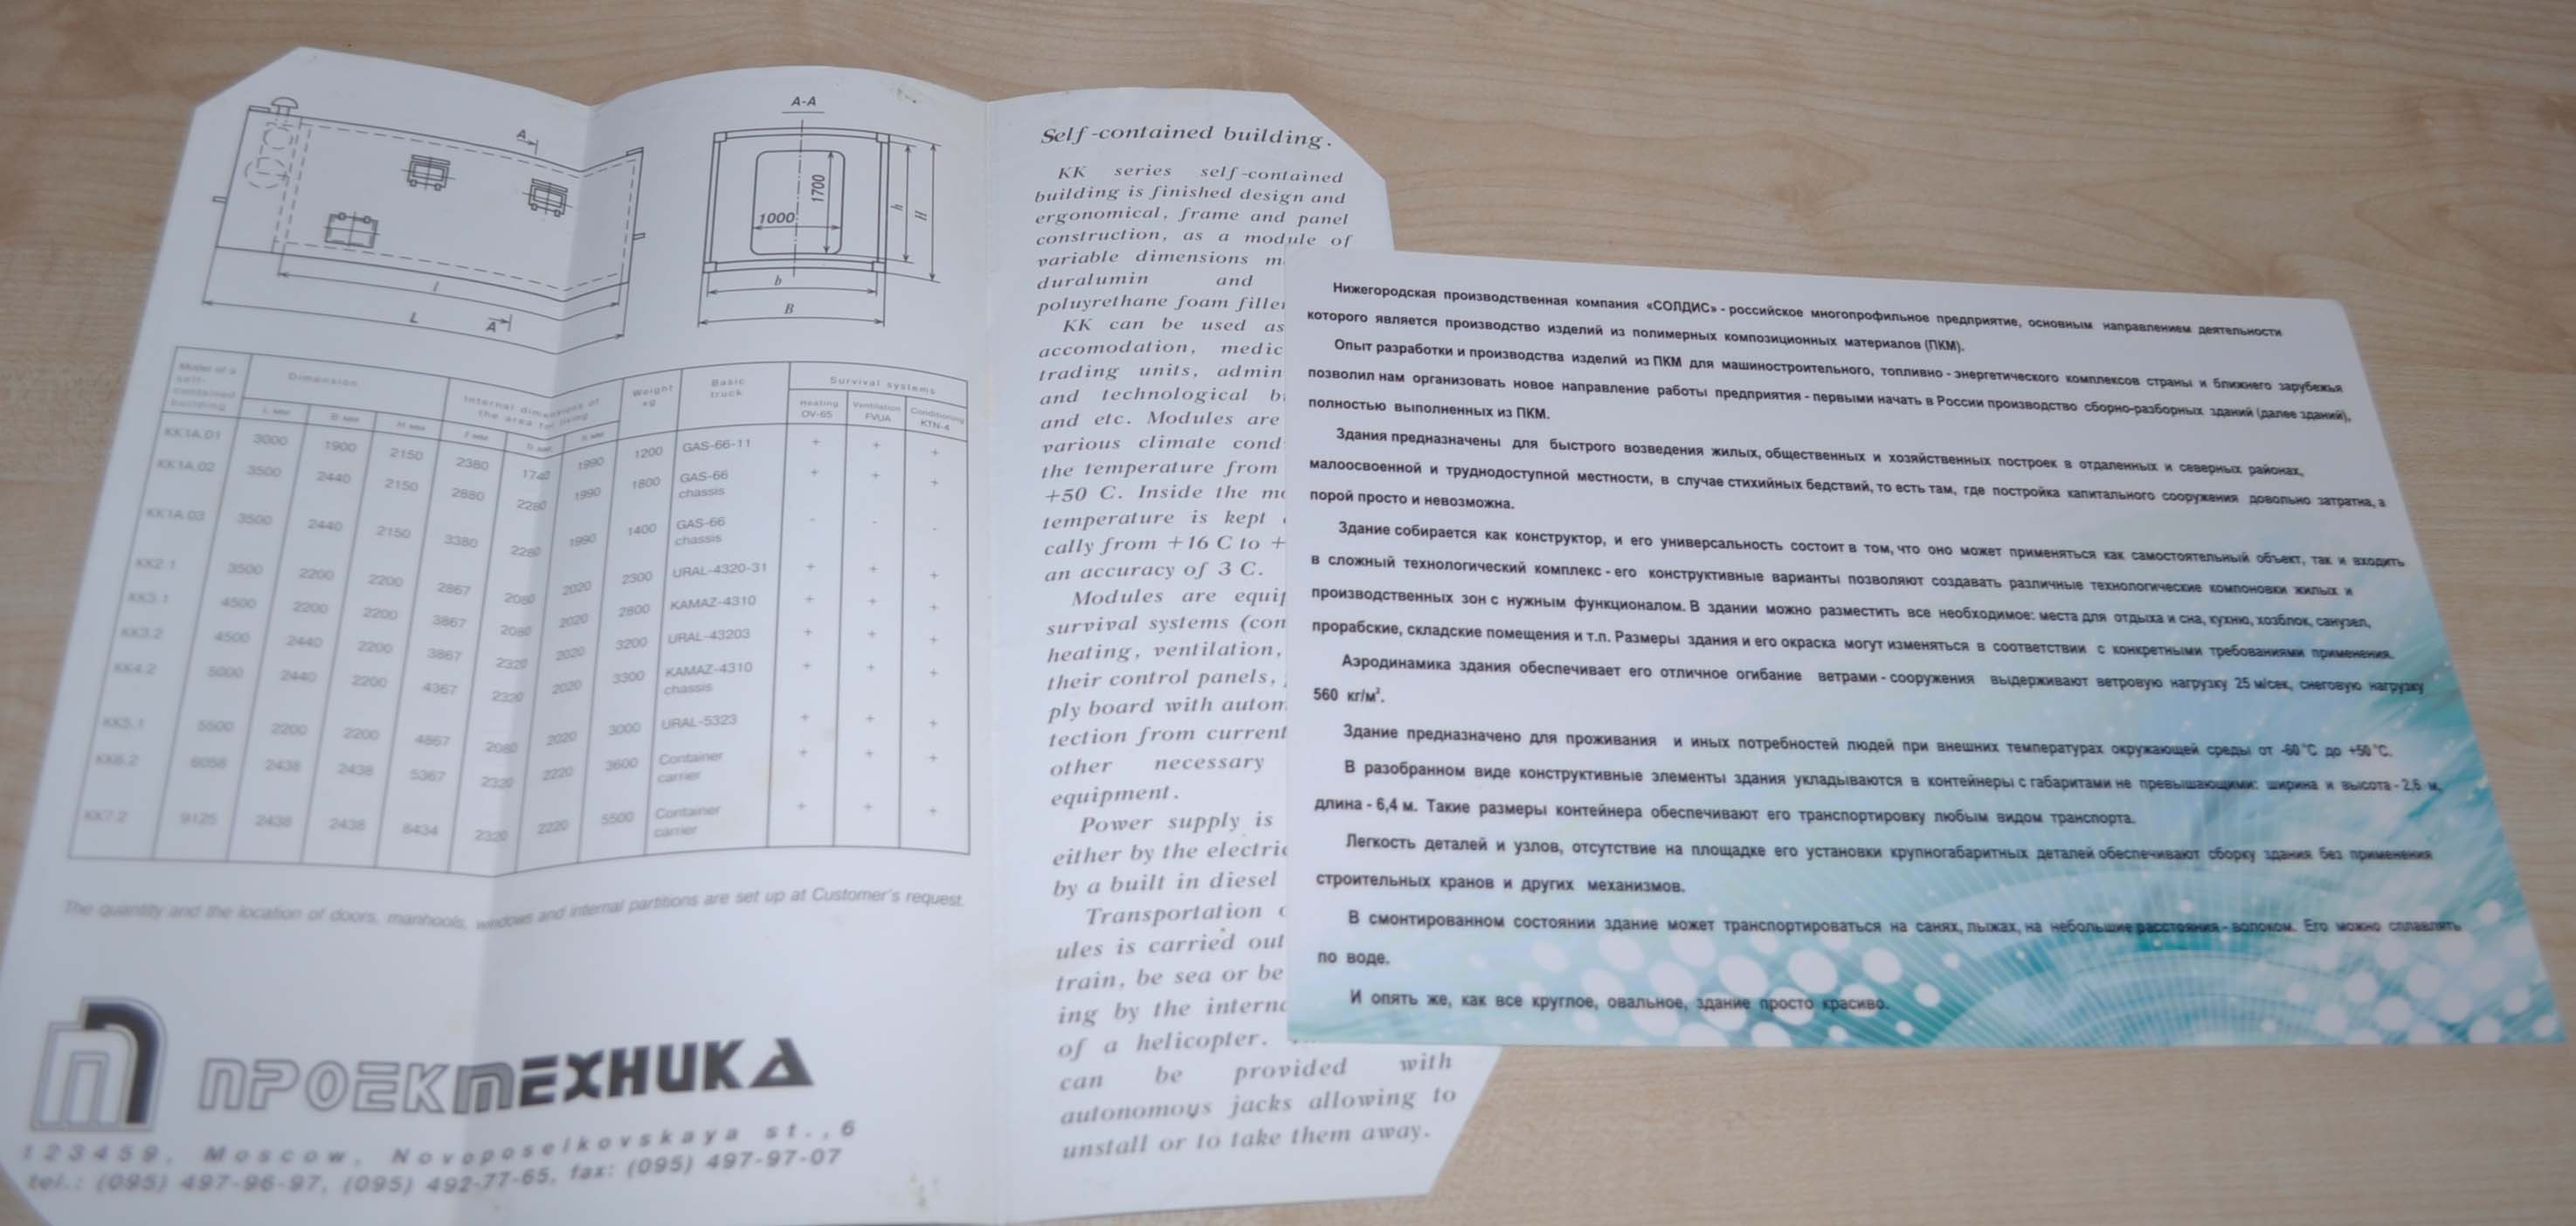 A-A
A
1000
1700
h
H
b
B
l
L
A
Model of a self-contained building
Dimension
Internal dimensions of the area for living
Weight kg
Basic truck
Survival systems
L мм
B мм
H мм
l мм
b мм
h мм
Heating OV-65
Ventilation FVUA
Conditioning KTN-4
KK1A.01 3000 1900 2150 2380 1740 1990 1200 GAS-66-11 + + +
KK1A.02 3500 2440 2150 2880 2280 1990 1800 GAS-66 chassis + + +
KK1A.03 3500 2440 2150 3380 2280 1990 1400 GAS-66 chassis - - -
KK2.1 3500 2200 2200 2867 2080 2020 2300 URAL-4320-31 + + +
KK3.1 4500 2200 2200 3867 2080 2020 2800 KAMAZ-4310 + + +
KK3.2 4500 2440 2200 3867 2320 2020 3200 URAL-43203 + + +
KK4.2 5000 2440 2200 4367 2320 2020 3300 KAMAZ-4310 chassis + + +
KK5.1 5500 2200 2200 4867 2080 2020 3000 URAL-5323 + + +
KK6.2 6058 2438 2438 5367 2320 2220 3600 Container carrier + + +
KK7.2 9125 2438 2438 8434 2320 2220 5500 Container carrier + + +
The quantity and the location of doors, manhools, windows and internal partitions are set up at Customer's request.
ПРОЕКТЕХНИКА
123459, Moscow, Novoposelkovskaya st., 6
tel.: (095) 497-96-97, (095) 492-77-65, fax: (095) 497-97-07
Self-contained building.
KK series self-contained
building is finished design and
ergonomical, frame and panel
construction, as a module of
variable dimensions m
duralumin and
poluyrethane foam fille
KK can be used as
accomodation, medic
trading units, admin
and technological b
and etc. Modules are
various climate cond
the temperature from
+50 C. Inside the mo
temperature is kept
cally from +16 C to +
an accuracy of 3 C.
Modules are equip
survival systems (con
heating, ventilation,
their control panels,
ply board with autom
tection from current
other necessary
equipment.
Power supply is
either by the electric
by a built in diesel
Transportation o
ules is carried out
train, be sea or be
ing by the interna
of a helicopter.
can be provided with
autonomoys jacks allowing to
unstall or to take them away.
Нижегородская производственная компания «СОЛДИС» - российское многопрофильное предприятие, основным направлением деятельности
которого является производство изделий из полимерных композиционных материалов (ПКМ).
Опыт разработки и производства изделий из ПКМ для машиностроительного, топливно - энергетического комплексов страны и ближнего зарубежья
позволил нам организовать новое направление работы предприятия - первыми начать в России производство сборно-разборных зданий (далее зданий),
полностью выполненных из ПКМ.
Здания предназначены для быстрого возведения жилых, общественных и хозяйственных построек в отдаленных и северных районах,
малоосвоенной и труднодоступной местности, в случае стихийных бедствий, то есть там, где постройка капитального сооружения довольно затратна, а
порой просто и невозможна.
Здание собирается как конструктор, и его универсальность состоит в том, что оно может применяться как самостоятельный объект, так и входить
в сложный технологический комплекс - его конструктивные варианты позволяют создавать различные технологические компоновки жилых и
производственных зон с нужным функционалом. В здании можно разместить все необходимое: места для отдыха и сна, кухню, хозблок, санузел,
прорабские, складские помещения и т.п. Размеры здания и его окраска могут изменяться в соответствии с конкретными требованиями применения.
Аэродинамика здания обеспечивает его отличное огибание ветрами - сооружения выдерживают ветровую нагрузку 25 м/сек, снеговую нагрузку
560 кг/м².
Здание предназначено для проживания и иных потребностей людей при внешних температурах окружающей среды от -60 °С до +50 °С.
В разобранном виде конструктивные элементы здания укладываются в контейнеры с габаритами не превышающими: ширина и высота - 2,6 м,
длина - 6,4 м. Такие размеры контейнера обеспечивают его транспортировку любым видом транспорта.
Легкость деталей и узлов, отсутствие на площадке его установки крупногабаритных деталей обеспечивают сборку здания без применения
строительных кранов и других механизмов.
В смонтированном состоянии здание может транспортироваться на санях, лыжах, на небольшие расстояния - волоком. Его можно сплавлять
по воде.
И опять же, как все круглое, овальное, здание просто красиво.